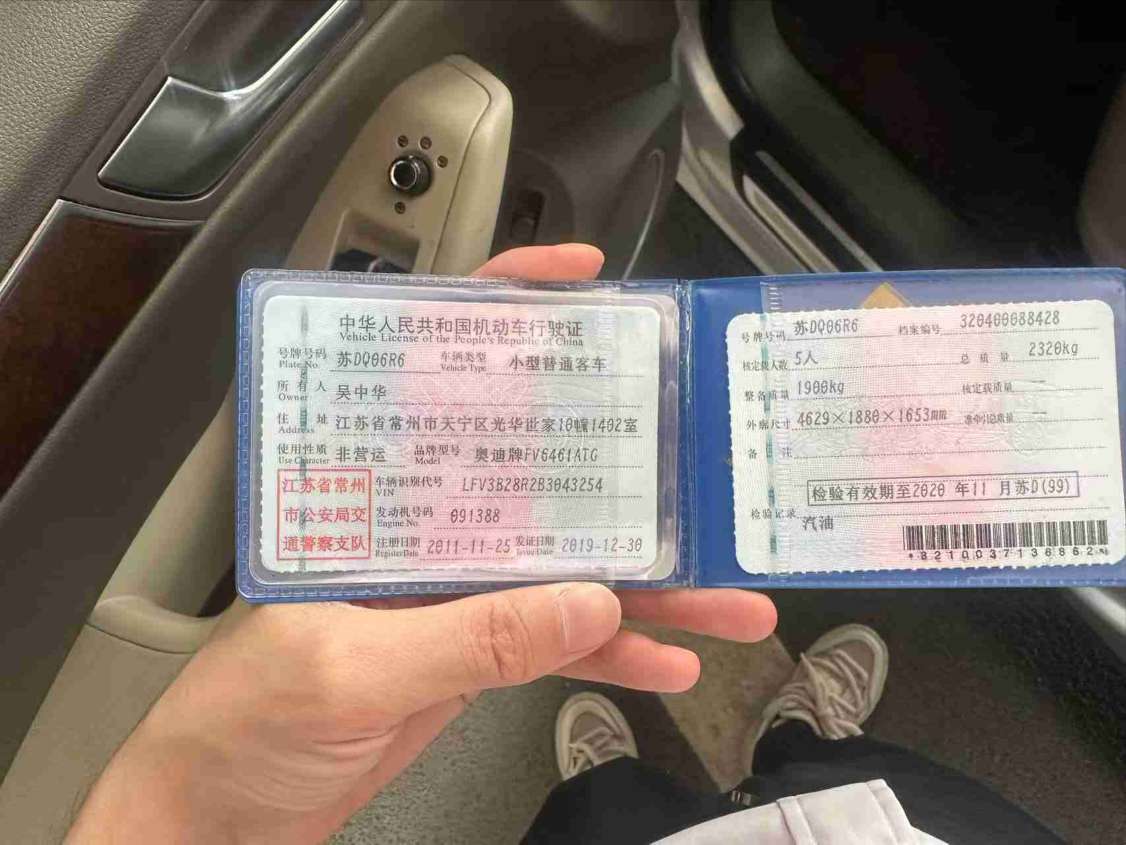 中华人民共和国机动车行驶证
Vehicle License of the People's Republic of China
号牌号码 苏DQ06R6 车辆类型 小型普通客车
Plate No. Vehicle Type
所有人 吴中华
Owner
住址 江苏省常州市天宁区光华世家10幢1402室
Address
使用性质 非营运 品牌型号 奥迪牌FV6461ATG
Use Character Model
江苏省常州
市公安局交
道警察支队
车辆识别代号 LFV3B28R2B3043254
VIN
发动机号码 091388
Engine No.
注册日期 2011-11-25 发证日期 2019-12-30
Register Date Issue Date
号牌号码 苏DQ06R6 档案编号 320400088428
核定载人数 5人 总质量 2320kg
整备质量 1900kg 核定载质量 —
外廓尺寸 4629×1880×1653 —
备注
检验有效期至2020 年11 月苏D(99)
检验记录
汽油
*8210037136862*